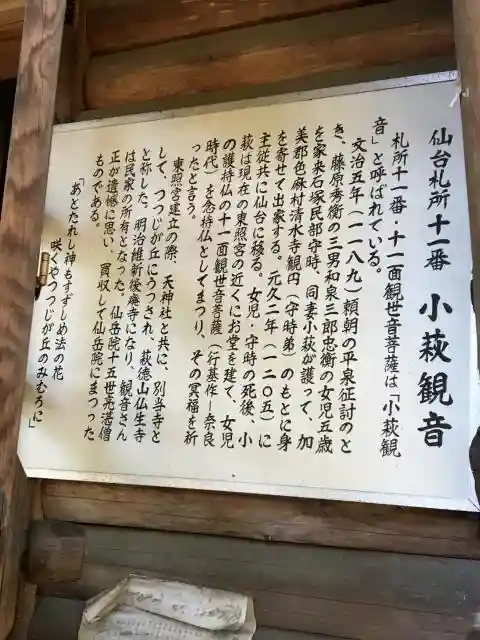 仙台札所十一番 小萩観音
札所十一番・十一面観世音菩薩は「小萩観
音」と呼ばれている。
文治五年(一一八九)頼朝の平泉征討のと
き、藤原秀衡の三男和泉三郎忠衡の女児五歳
を家来石塚民部守時、同妻小萩が護って、加
美郡色麻村清水寺観円(守時弟)のもとに身
を寄せて出家する。元久二年(一二〇五)に
主従共に仙台に移る。女児・守時の死後、小
萩は現在の東照宮の近くにお堂を建て、女児
の護持仏の十一面観世音菩薩(行基作—奈良
時代)を念持仏としてまつり、その冥福を祈
ったと言う。
東照宮建立の際、天神社と共に、別当寺と
して、つつじが丘にうつされ、萩徳山仏生寺
と称した。明治維新後廃寺になり、観音さん
は民家の所有となった。仙岳院十五世亮湛僧
正が遺憾に思い、買収して仙岳院にまつった
ものである。
「あとたれし神もすずしめ法の花
咲くやつつじが丘のみむろに」